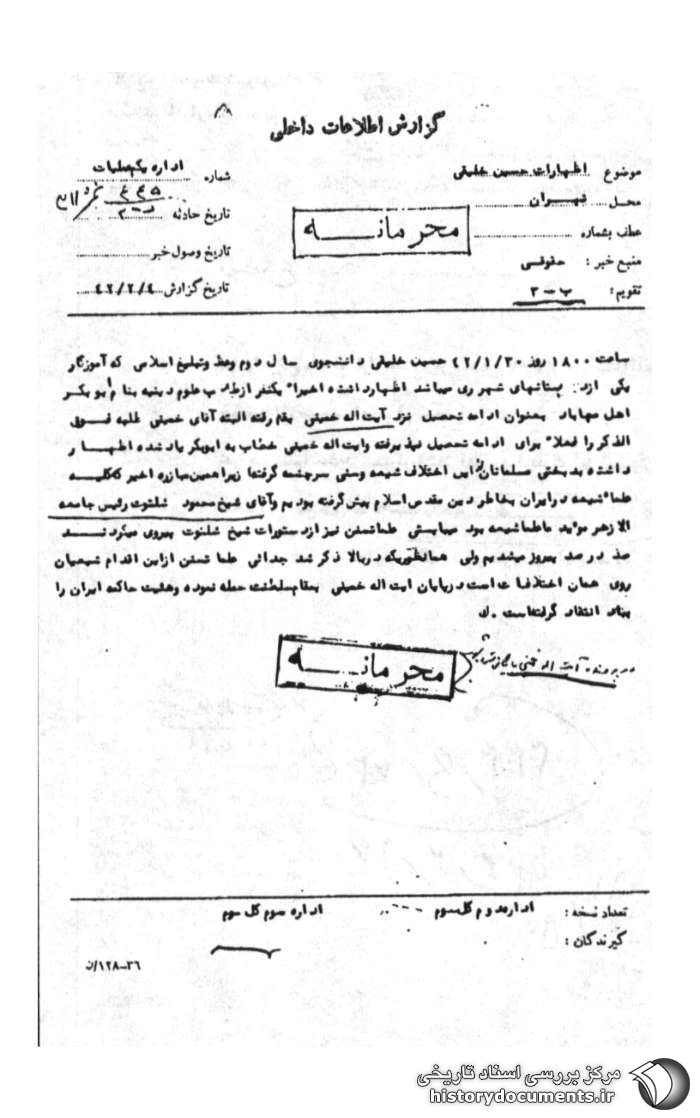 گزارش اطلاعات داخلی
موضوع اظهارات حسین خلیلی
محل تهران
عطف بشماره
منبع خبر : حقوقی
تقویم : ب - ۳
شماره اداره یکم عملیات
تاریخ حادثه
تاریخ وصول خبر
تاریخ گزارش ۴۲/۲/۴
محرمانــه
ساعت ۱۸۰۰ روز ۴۲/۱/۳۰ حسین خلیلی دانشجوی سال دوم وعظ وتبلیغ اسلامی که آموزگار
یکی از دبستانهای شهر ری میباشد اظهار داشته اخیرا" یکنفر از طلاب علوم دینیه بنام ابوبکر
اهل مهاباد بعنوان ادامه تحصیل نزد آیت اله خمینی بقم رفته البته آقای خمینی طلبه فوق
الذکر را فعلا" برای ادامه تحصیل پذیرفته وایت اله خمینی خطاب به ابوبکر یاد شده اظهار
داشته بدبختی مسلمانان از این اختلاف شیعه وسنی سرچشمه گرفته زیرا همین مبارزه اخیر که کلیه
علما شیعه در ایران بخاطر دین مقدس اسلام پیش گرفته بودیم وآقای شیخ محمود شلتوت رئیس جامعه
الازهر موید ما علما شیعه بود میبایستی علما تسنن نیز از دستورات شیخ شلتوت پیروی میکردند
صد در صد پیروز میشدیم ولی همانطوریکه در بالا ذکر شد جدائی علما تسنن از این اقدام شیعیان
روی همان اختلافات است در پایان ایت اله خمینی بمقام سلطنت حمله نموده وهئیت حاکمه ایران را
بباد انتقاد گرفته است . ک
محرمانــه
در پرونده آیت اله خمینی بایگانی شود
تعداد نسخه : اداره دوم کل سوم اداره سوم کل سوم
گیرندگان :
۱۲۸-۳۶/ن
مرکز بررسی اسناد تاریخی
historydocuments.ir